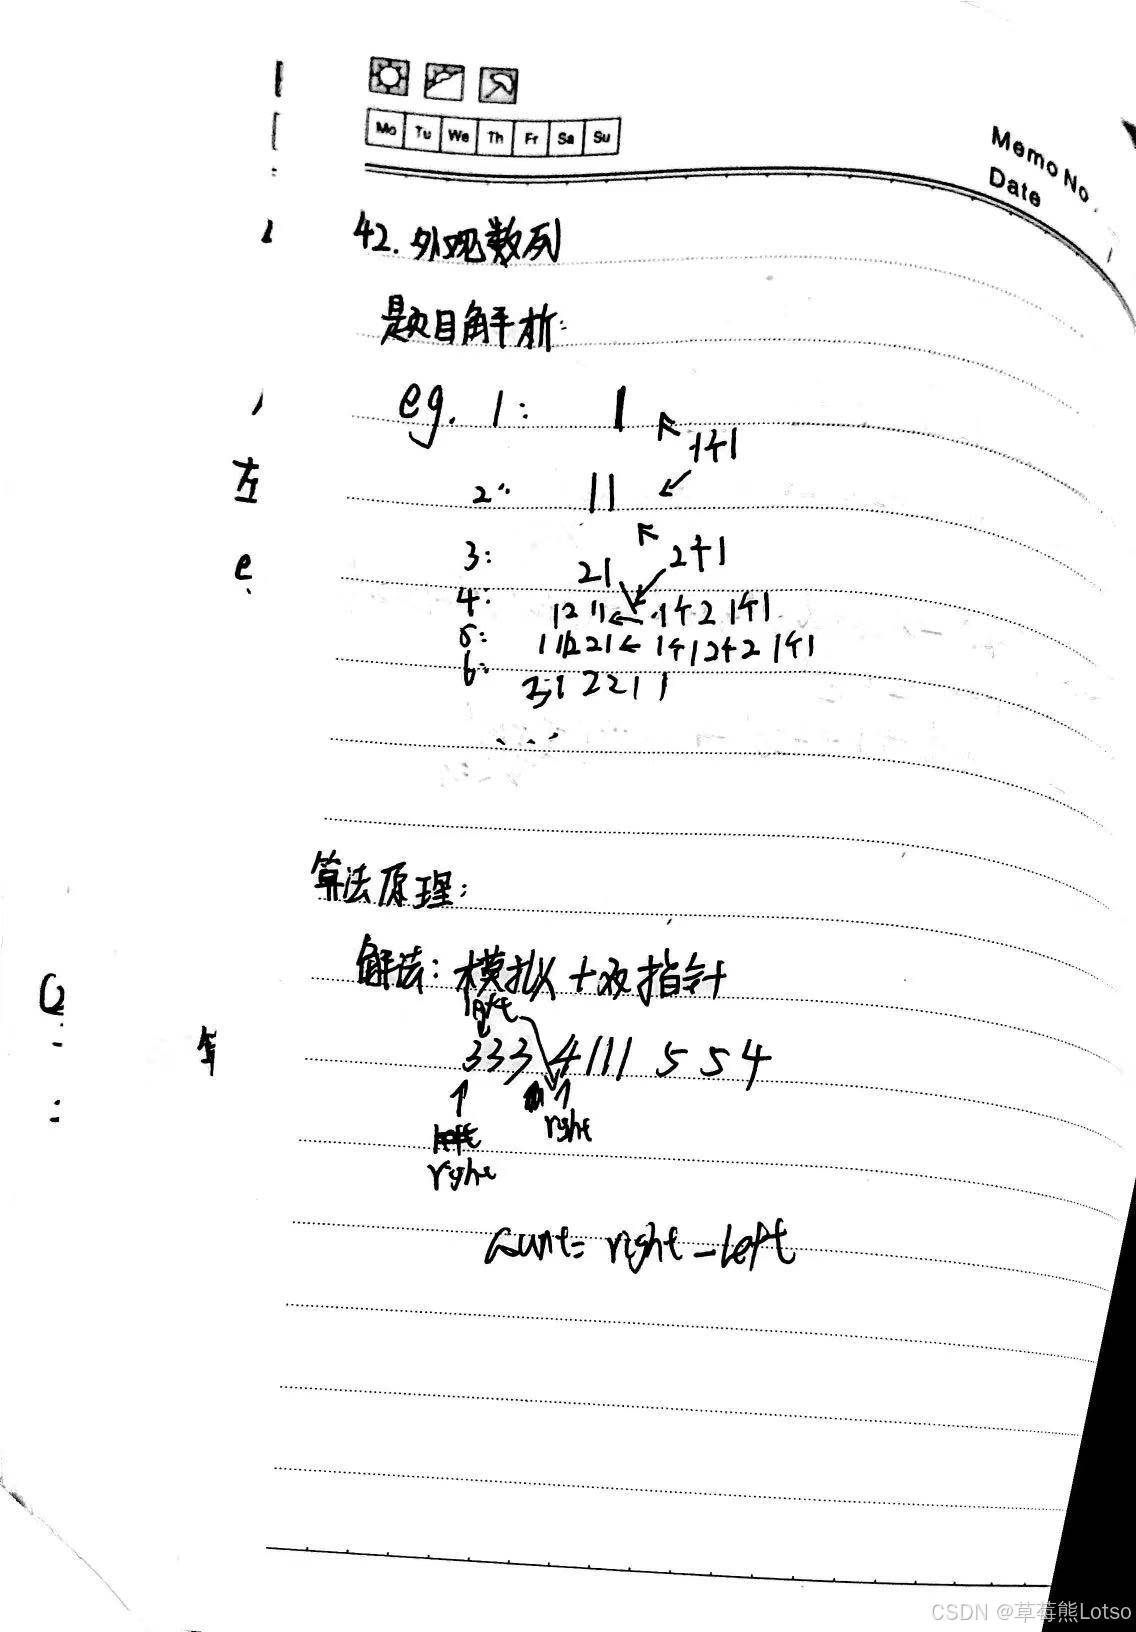 Mo Tu We Th Fr Sa Su
Memo No.
Date
42.外观数列
题目解析:
eg. 1: 1
1个1
2: 11
2个1
3: 21
4: 1211 ← 1个2 1个1
5: 111221 ← 1个1 2个2 1个1
6: 312211
...
算法原理:
解法:模拟+双指针
left
333 4111 554
right
left
right
count= right-left
左
e
CSDN @草莓熊Lotso